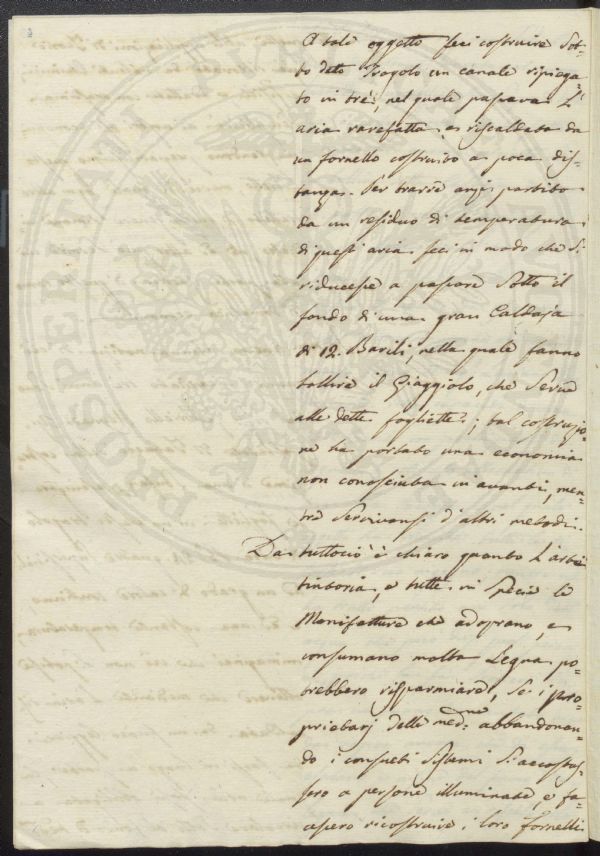 A tale oggetto feci costruire sot-
to detto Trogolo un canale ripiega-
to in trè, nel quale passava l'
aria rarefatta, e riscaldata da
un fornello costruito a poca dis-
tanza. Per trarre anzi partito
da un residuo di temperatura
di quest'aria feci in modo che si
riducesse a passare sotto il
fondo di una gran Caldaja
di 12. Barili, nella quale fanno
bollire il Giaggiolo, che serve
alle dette fogliette; tal costruzio-
ne ha portato una economia
non conosciuta in avanti, men-
tre servivansi d'altri metodi.
Da tuttociò è chiaro quanto l'arte
tintoria, e tutte in specie le
Manifatture che adoprano, e
consumano molta Legna po-
trebbero risparmiare, se i pro-
prietarj delle med:me abbandonan-
do i consueti sistemi s'accostas-
sero a persone illuminate, e fa-
cessero ricostruire i loro fornelli